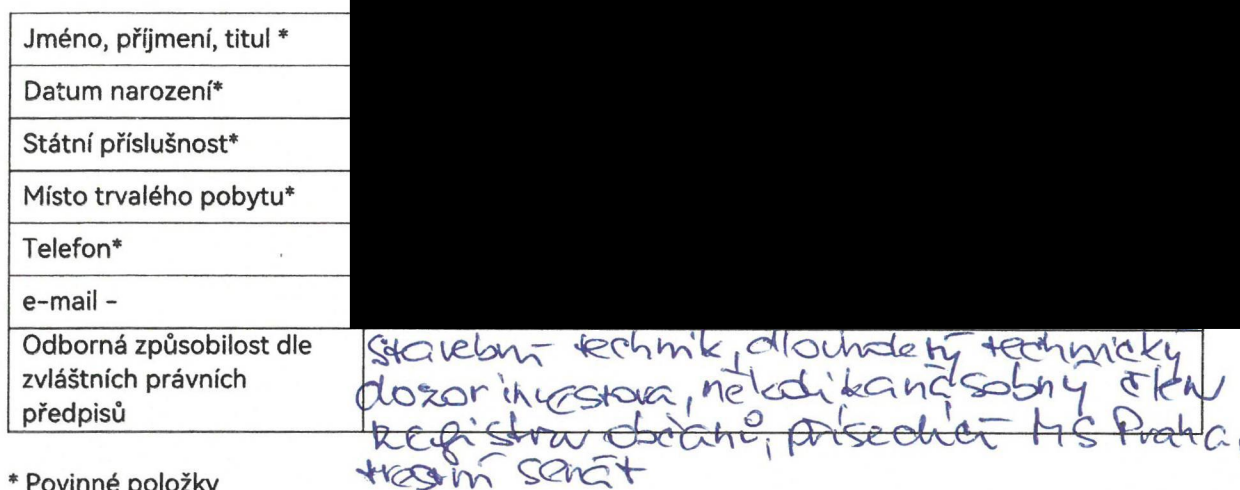 Jméno, příjmení, titul *
Datum narození*
Státní příslušnost*
Místo trvalého pobytu*
Telefon*
e-mail -
Odborná způsobilost dle
zvláštních právních
předpisů
stavební technik, dlouholetý technický
dozor investora, několikanásobný člen
občanů, přísedící MS Praha,
trestní senát
* Povinné položky